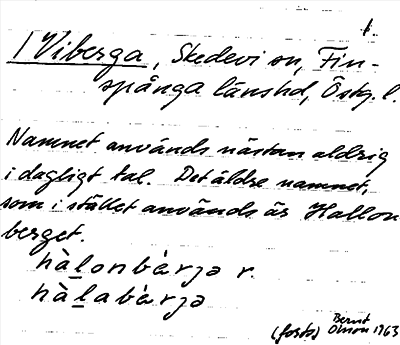 1.
Viberga, Skedevi sn, Fin-
spånga länshd, Östg. l.
Namnet används nästan aldrig
i dagligt tal. Det äldre namnet,
som i stället används är Hallon
berget.
hàlonbèrjə r.
hàlabèrjə
Bernt
(forts) Olsson 1963